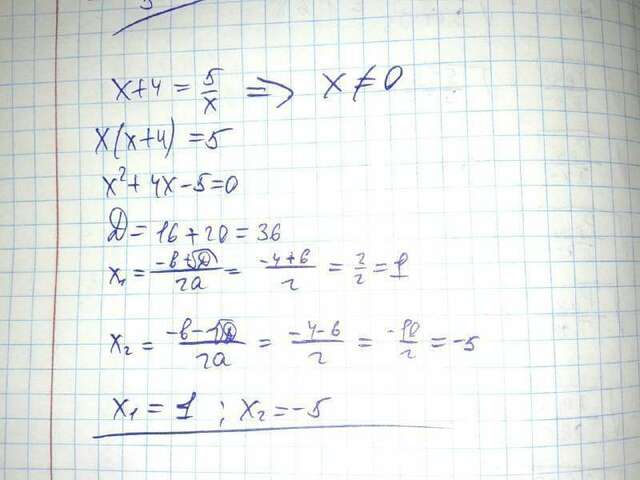 x+4 = 5/x => x ≠ 0
x(x+4) = 5
x²+4x-5=0
D = 16+20 = 36
x₁ = (-b+√D)/2a = (-4+6)/2 = 2/2 = 1
x₂ = (-b-√D)/2a = (-4-6)/2 = -10/2 = -5
x₁ = 1 ; x₂ = -5